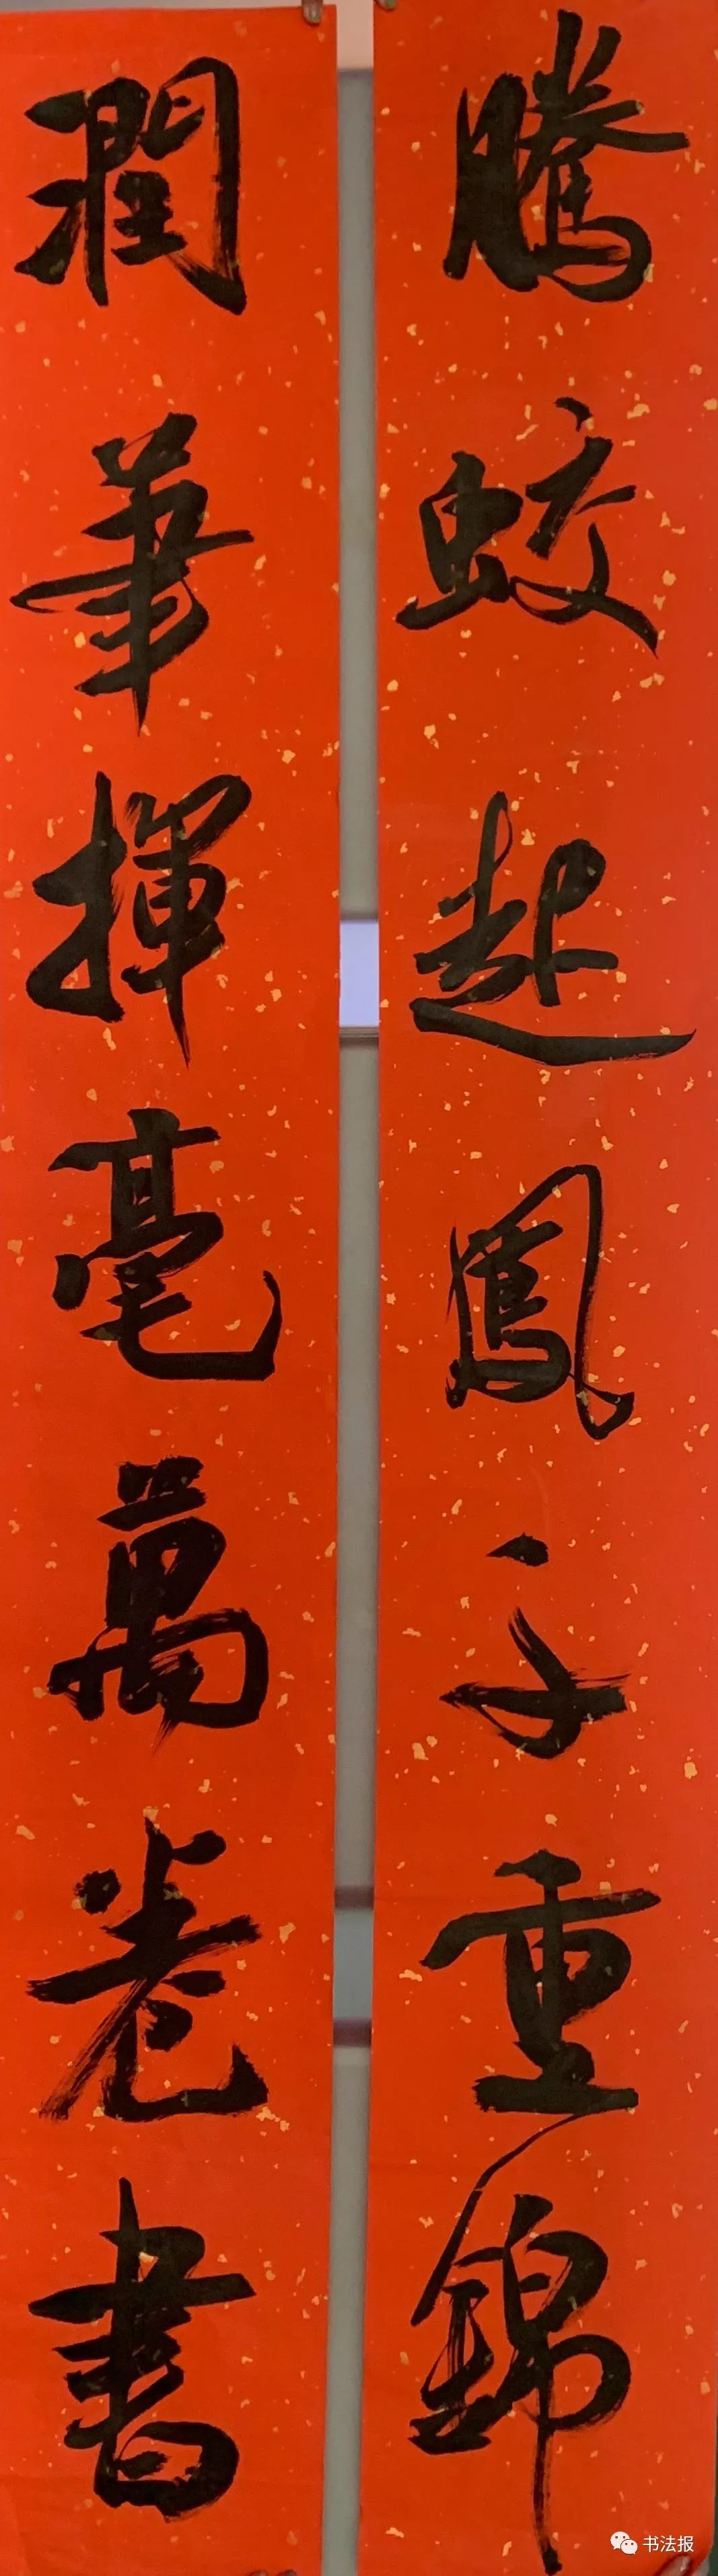 騰蛟起鳳千重錦
潤筆揮毫萬卷書
书法报